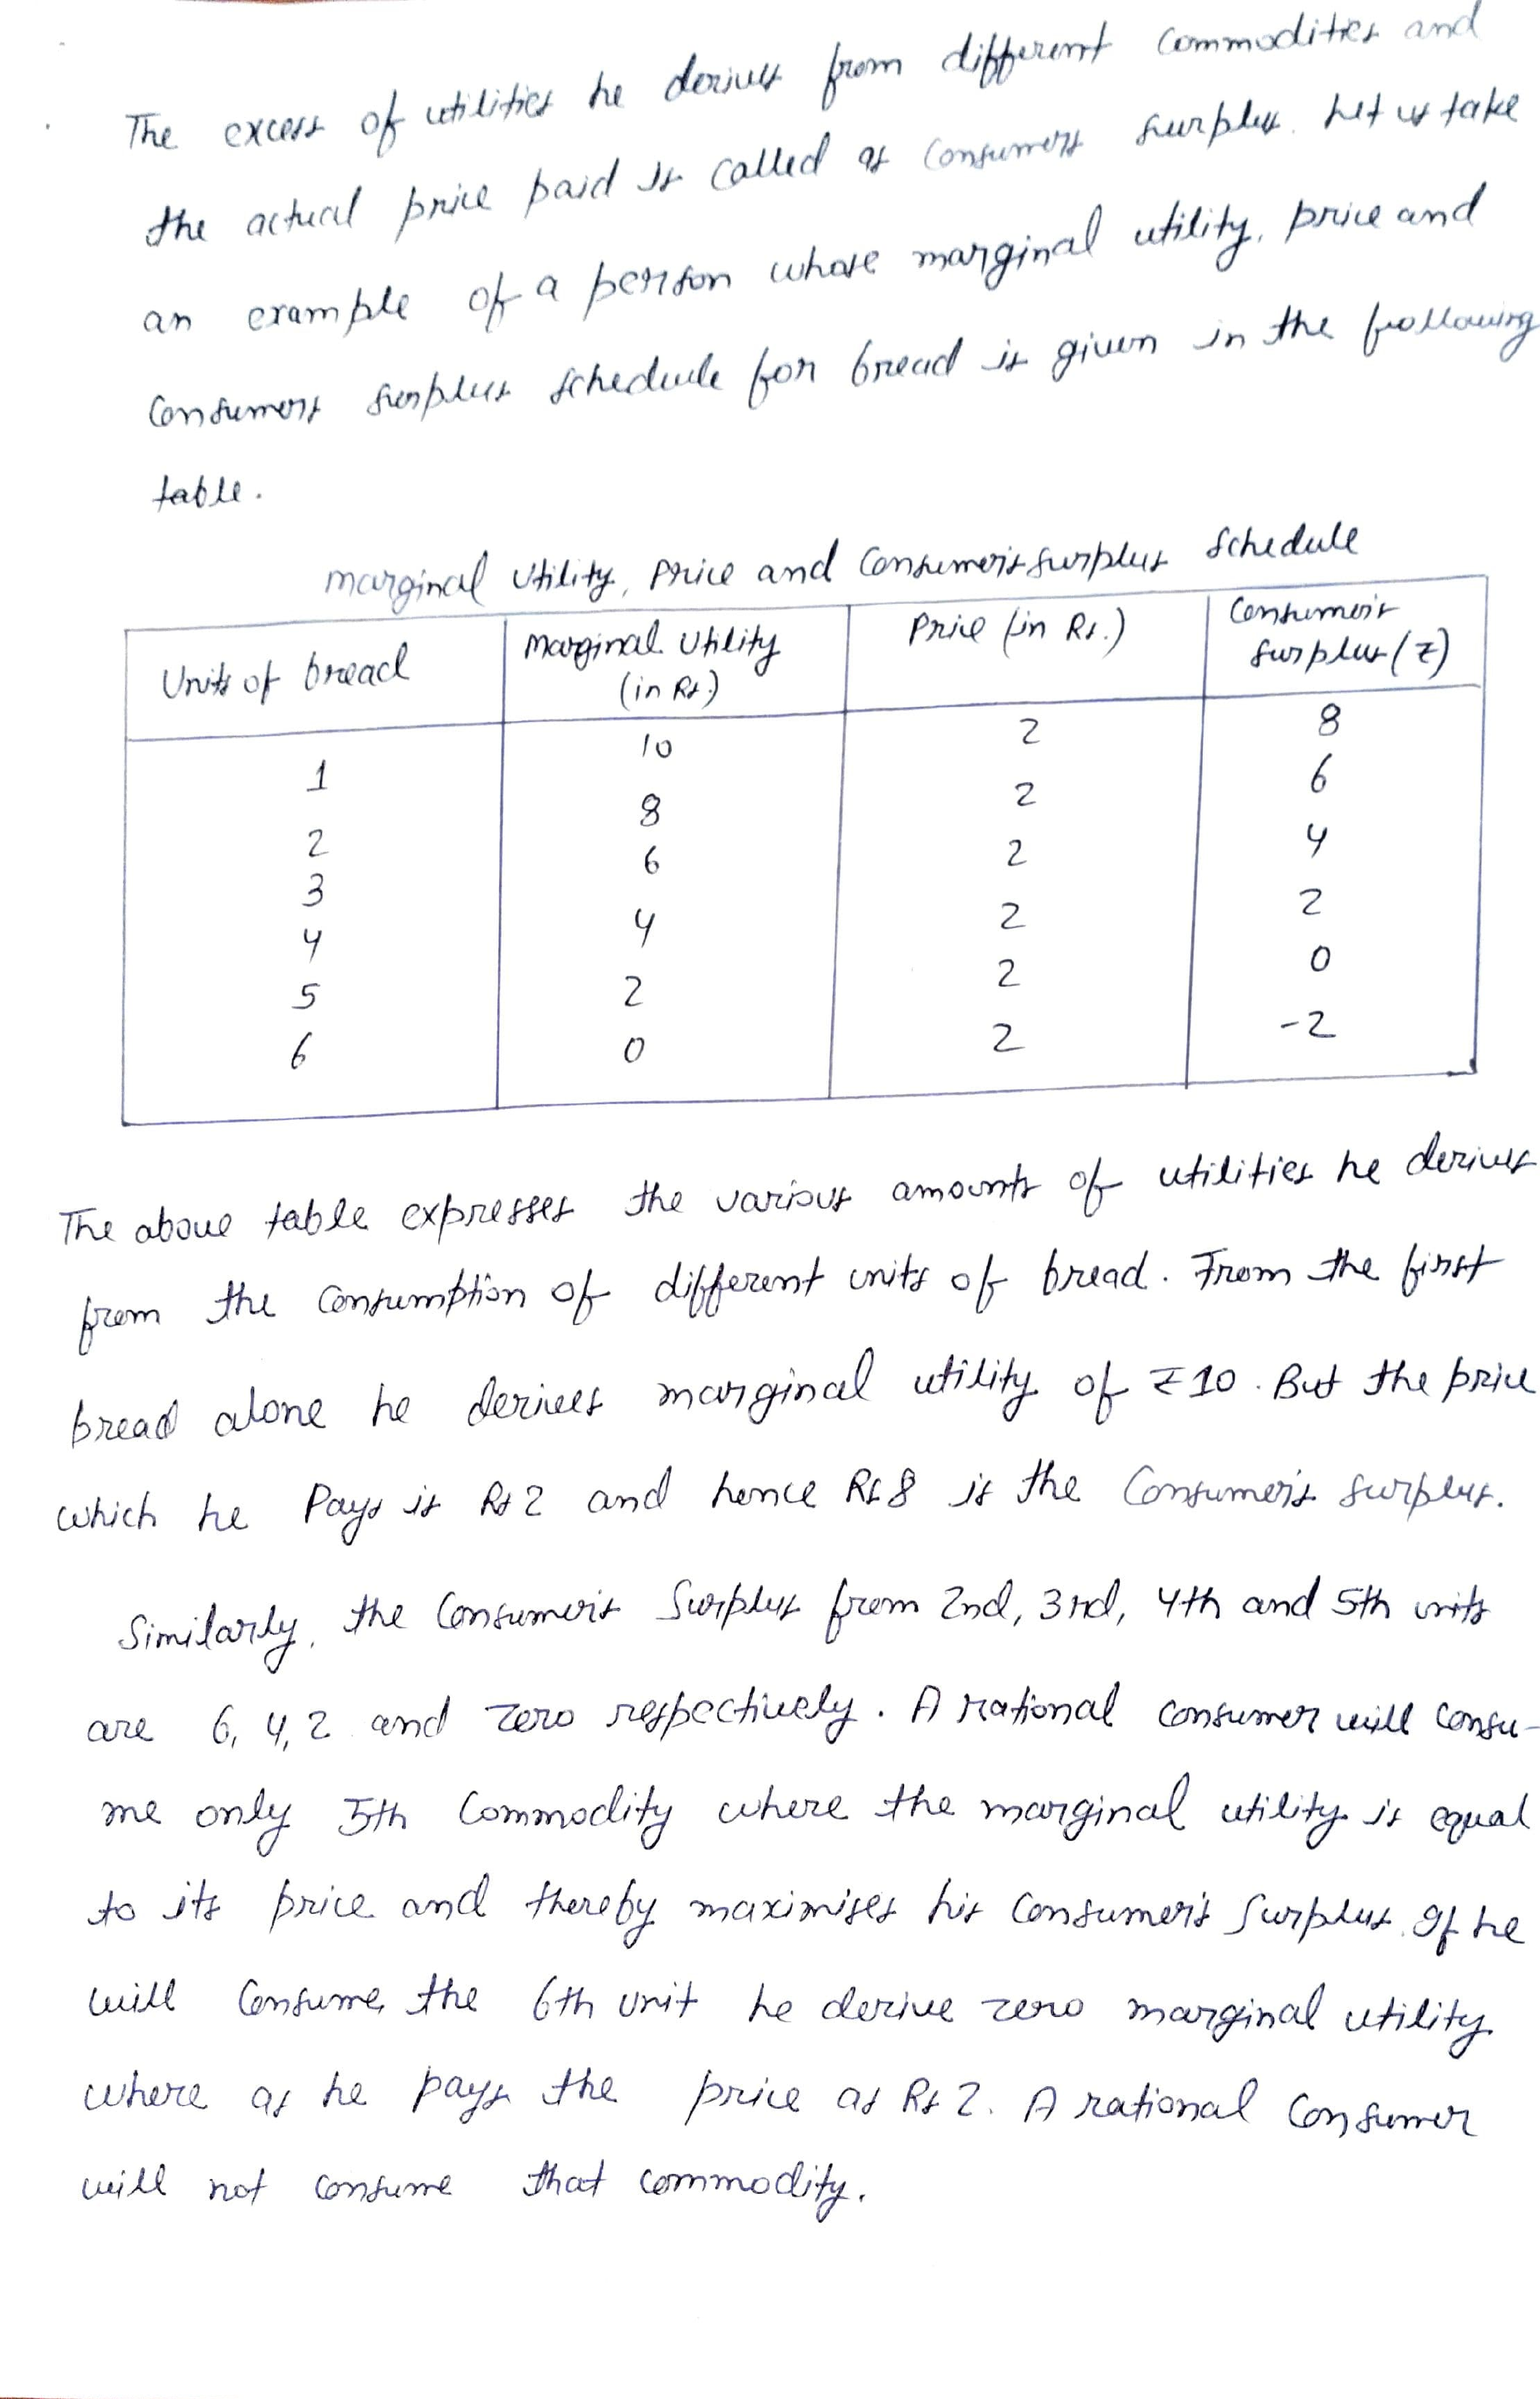 The excess of utilities he derives from different commodities and
the actual price paid is called as consumers surplus. Let us take
an example of a person whose marginal utility, price and
consumers surplus schedule for bread is given in the following
table.
marginal utility, price and consumer's surplus schedule
Units of bread | Marginal Utility (in Rs.) | Price (in Rs.) | Consumer's surplus (₹)
1 | 10 | 2 | 8
2 | 8 | 2 | 6
3 | 6 | 2 | 4
4 | 4 | 2 | 2
5 | 2 | 2 | 0
6 | 0 | 2 | -2
The above table expresses the various amounts of utilities he derives
from the consumption of different units of bread. From the first
bread alone he derives marginal utility of ₹10. But the price
which he Pays is Rs 2 and hence Rs 8 is the Consumer's surplus.
Similarly, the Consumer's Surplus from 2nd, 3rd, 4th and 5th units
are 6, 4, 2 and zero respectively. A rational consumer will consu-
me only 5th Commodity where the marginal utility is equal
to its price and thereby maximises his Consumer's Surplus. If he
will Consume, the 6th unit he derive zero marginal utility
where as he pays the price as Rs 2. A rational Consumer
will not consume that commodity.